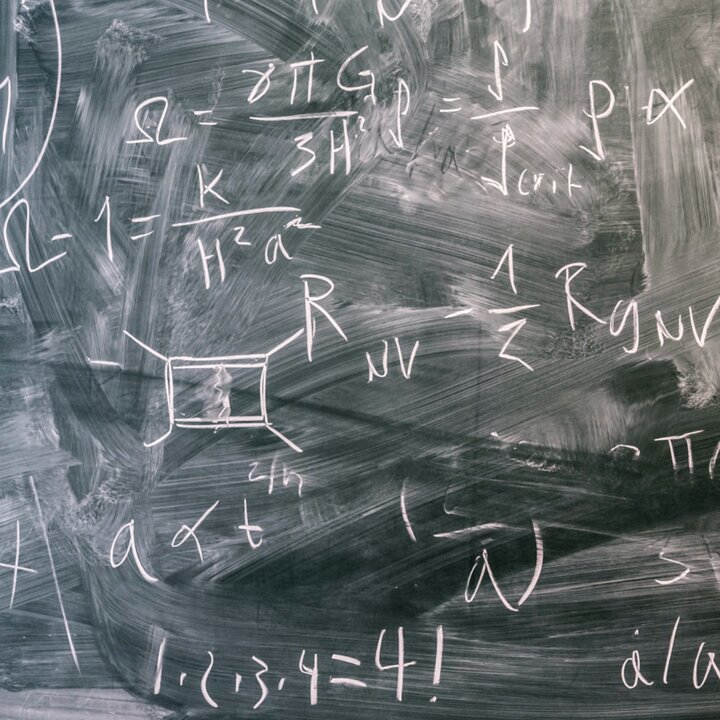 Ω = 8πG/3H² ρ = ρ/ρcrit ρ ∝
Ω - 1 = K/H²a²
R NV - 1/2 R g NV
a ∝ t^2/n
( — / a )
ȧ/a
1·2·3·4=4!